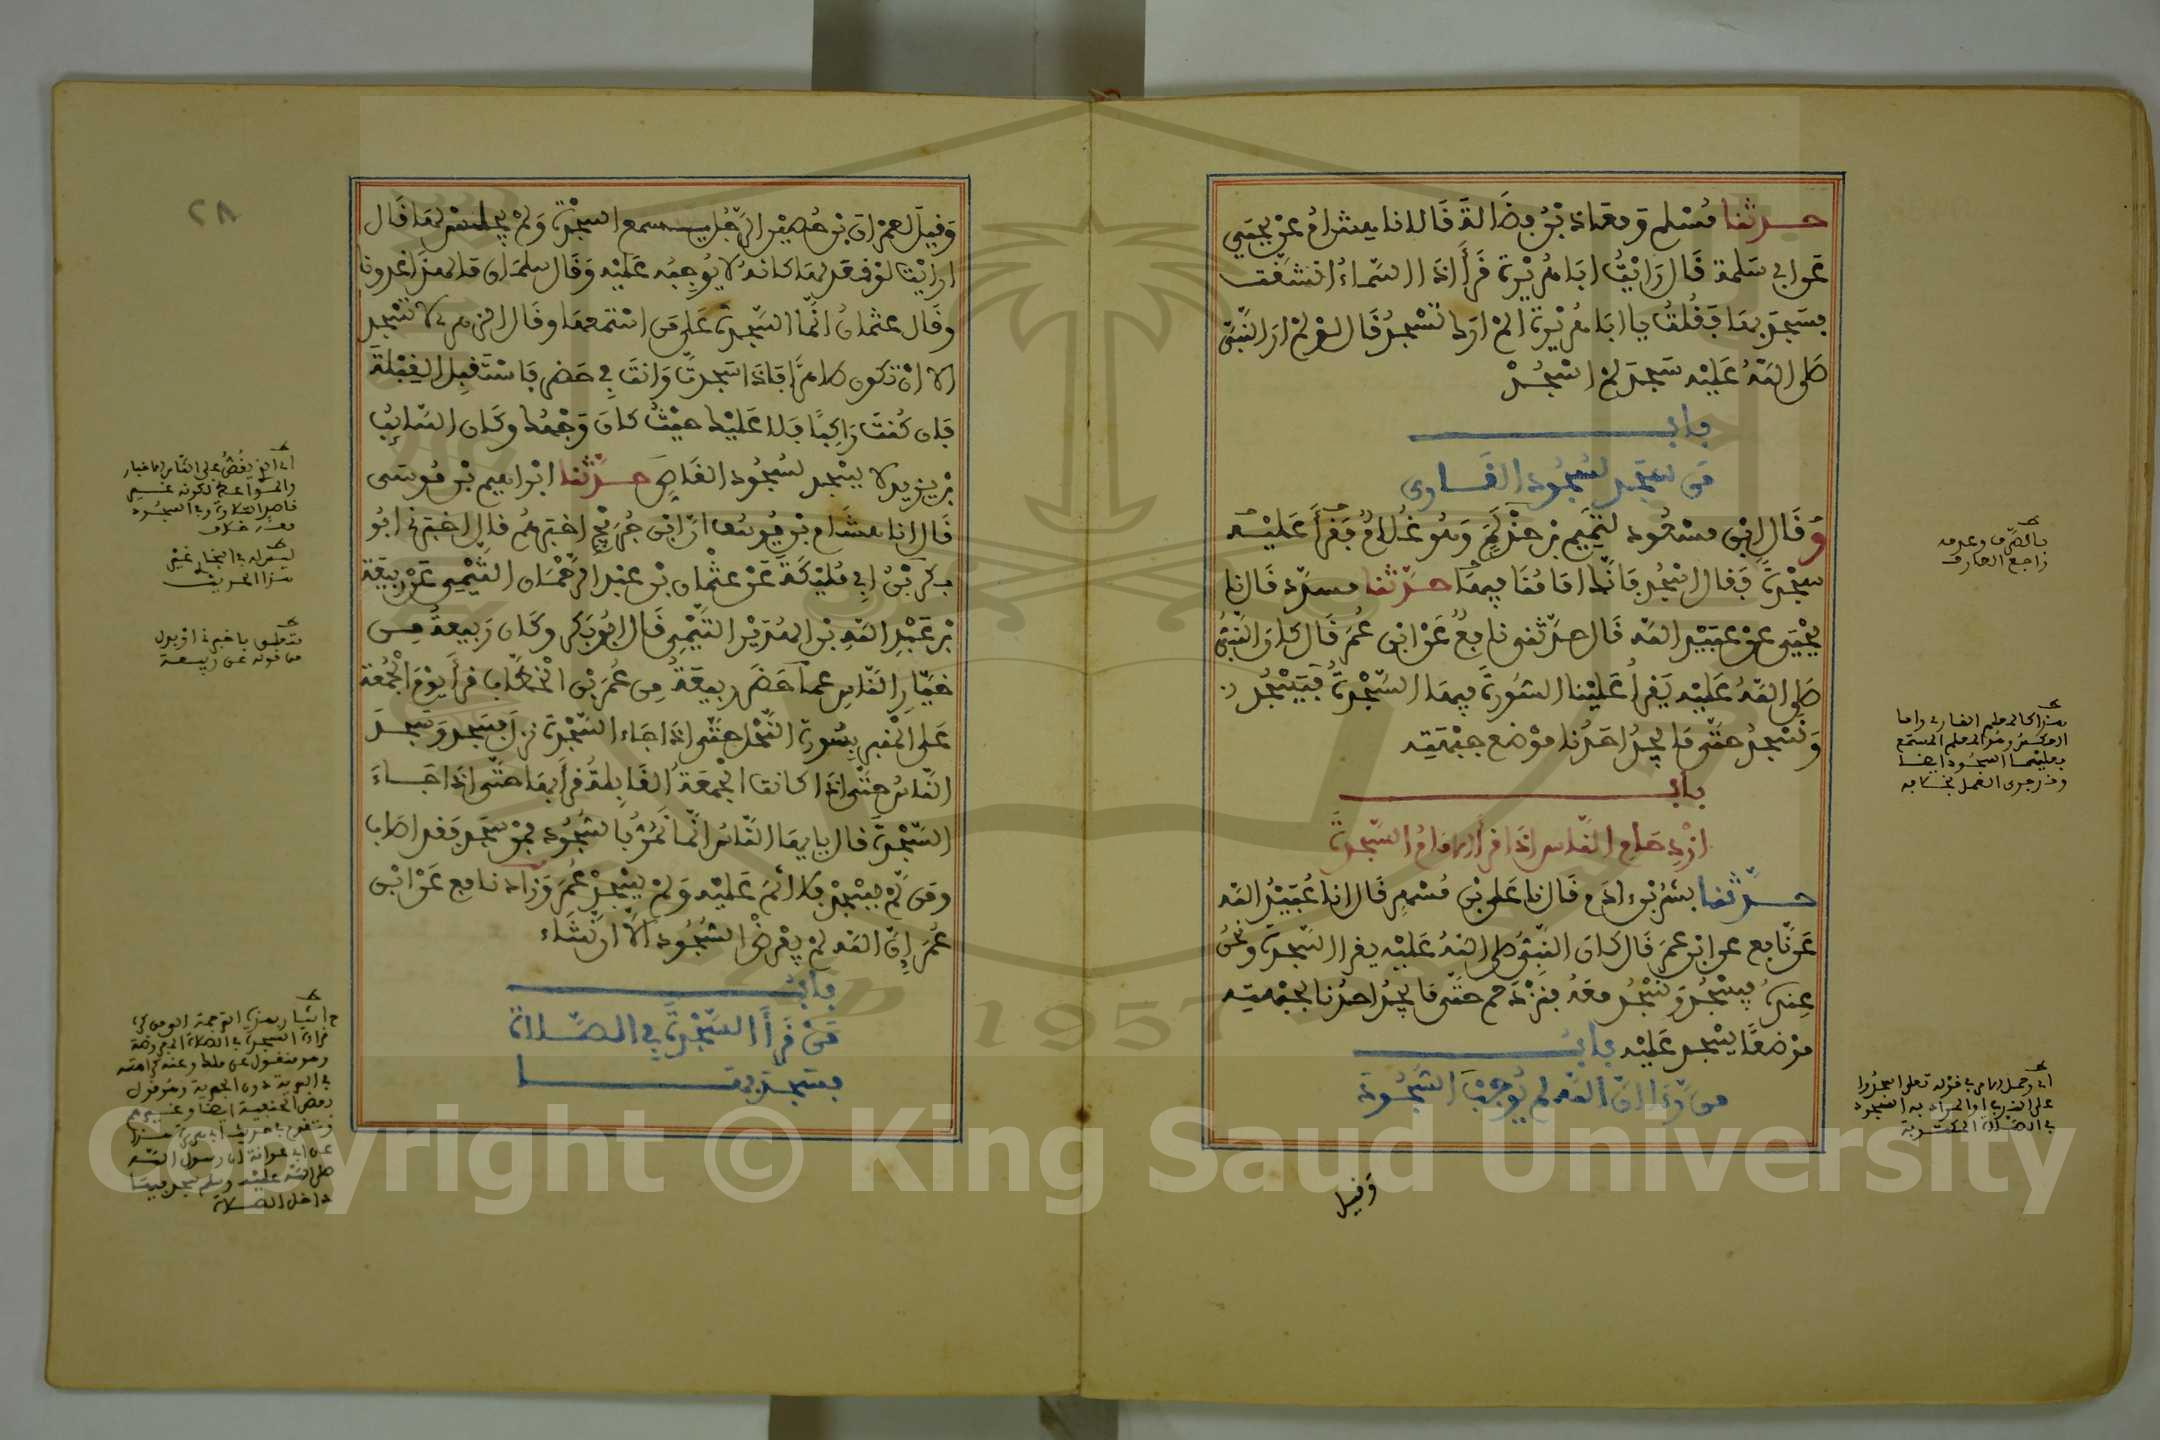 حدثنا مسلم ومعاذ بن فضالة قالا نا هشام عن يحيى
عن ابي سلمة قال رايت ابا هريرة قرأ اذا السماء انشقت
فسجد بها فقلت يا ابا هريرة الم ارك تسجد قال لو لم ار النبي
صلى الله عليه سجد لم اسجد
باب
من سجد لسجود القارى
وقال ابن مسعود لتميم بن حذلم وهو غلام فقرأ عليه
سجدة فقال اسجد فانك امامنا فيها حدثنا مسدد قال نا
يحيى عن عبيد الله قال حدثني نافع عن ابن عمر قال كان النبي
صلى الله عليه يقرأ علينا السورة فيها السجدة فيسجد
ونسجد حتى ما يجد احدنا موضع جبهته
باب
ازدحام الناس اذا قرأ الامام السجدة
حدثنا بشر بن ءادم قال نا علي بن مسهر قال انا عبيد الله
عن نافع عن ابن عمر قال كان النبي صلى الله عليه يقرا السجدة ونحن
عنده فيسجد ونسجد معه فنزدحم حتى ما يجد احدنا لجبهته
موضعا يسجد عليه باب
من رءا ان الله لم يوجب السجود
وقيل
بالصرف وعدمه
راجع العارف
وقد جرى العمل
في الصلاة المكتوبة
وقيل لعمران بن حصين الرجل يسمع السجدة ولم يجلس لها قال
ارايت لو قعد لها كانه لا يوجبه عليه وقال سلمان ما لهذا غدونا
وقال عثمان انما السجدة على من استمعها وقال الزهري لا تسجد
الا ان تكون طاهرا فاذا سجدت وانت في حضر فاستقبل القبلة
فان كنت راكبا فلا عليك حيث كان وجهك وكان السايب
بن يزيد لا يسجد لسجود القاص حدثنا ابراهيم بن موسى
قال انا هشام بن يوسف ان ابن جريج اخبرهم قال اخبرني ابو
بكر بن ابي مليكة عن عثمان بن عبد الرحمان التيمي عن ربيعة
بن عبد الله بن الهدير التيمي قال ابو بكر وكان ربيعة من
خيار الناس عما حضر ربيعة من عمر بن الخطاب قرأ يوم الجمعة
على المنبر بسورة النحل حتى اذا جاء السجدة نزل فسجد وسجد
الناس حتى اذا كانت الجمعة القابلة قرأ بها حتى اذا جاء
السجدة قال يا يها الناس انما نمر بالسجود فمن سجد فقد اصاب
ومن لم يسجد فلا اثم عليه ولم يسجد عمر وزاد نافع عن ابن
عمر إن الله لم يفرض السجود الا ان نشاء
باب
من قرأ السجدة في الصلاة
فسجد بها
٢٨
ليس له في البخاري غير
هذا الحديث
من قوله عن ربيعة
صلى الله عليه وسلم سجد فيها
داخل الصلاة
Copyright © King Saud University
1957